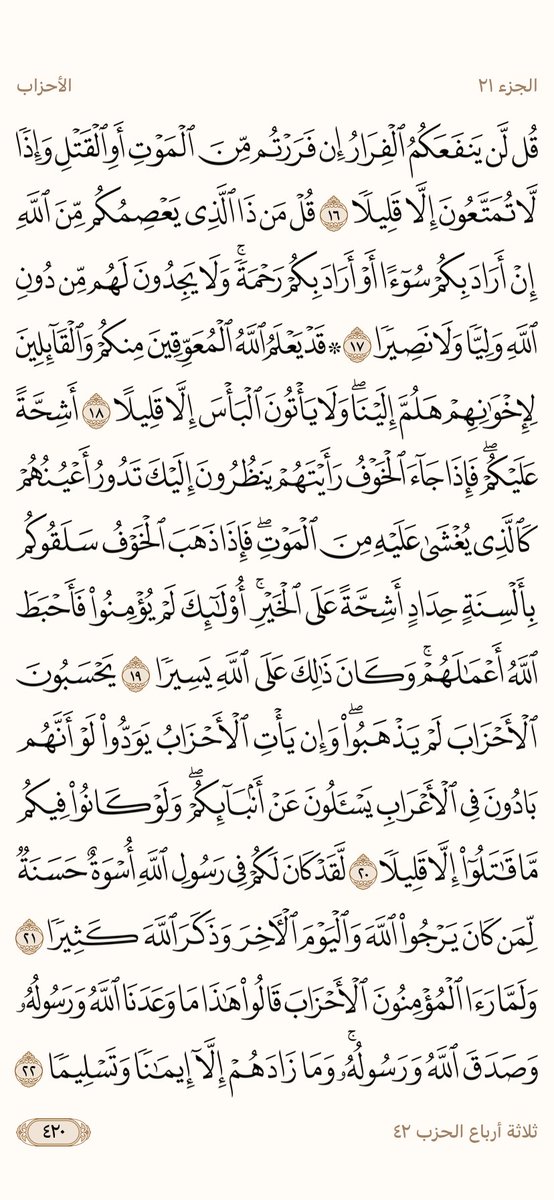 الجزء ٢١
الأحزاب
قُل لَّن يَنفَعَكُمُ ٱلْفِرَارُ إِن فَرَرْتُم مِّنَ ٱلْمَوْتِ أَوِ ٱلْقَتْلِ وَإِذًا
لَّا تُمَتَّعُونَ إِلَّا قَلِيلًا ١٦ قُلْ مَن ذَا ٱلَّذِى يَعْصِمُكُم مِّنَ ٱللَّهِ
إِنْ أَرَادَ بِكُمْ سُوٓءًا أَوْ أَرَادَ بِكُمْ رَحْمَةً ۚ وَلَا يَجِدُونَ لَهُم مِّن دُونِ
ٱللَّهِ وَلِيًّا وَلَا نَصِيرًا ١٧ ۞ قَدْ يَعْلَمُ ٱللَّهُ ٱلْمُعَوِّقِينَ مِنكُمْ وَٱلْقَآئِلِينَ
لِإِخْوَٰنِهِمْ هَلُمَّ إِلَيْنَا ۖ وَلَا يَأْتُونَ ٱلْبَأْسَ إِلَّا قَلِيلًا ١٨ أَشِحَّةً
عَلَيْكُمْ ۖ فَإِذَا جَآءَ ٱلْخَوْفُ رَأَيْتَهُمْ يَنظُرُونَ إِلَيْكَ تَدُورُ أَعْيُنُهُمْ
كَٱلَّذِى يُغْشَىٰ عَلَيْهِ مِنَ ٱلْمَوْتِ ۖ فَإِذَا ذَهَبَ ٱلْخَوْفُ سَلَقُوكُم
بِأَلْسِنَةٍ حِدَادٍ أَشِحَّةً عَلَى ٱلْخَيْرِ ۚ أُو۟لَٰٓئِكَ لَمْ يُؤْمِنُوا۟ فَأَحْبَطَ
ٱللَّهُ أَعْمَٰلَهُمْ ۚ وَكَانَ ذَٰلِكَ عَلَى ٱللَّهِ يَسِيرًا ١٩ يَحْسَبُونَ
ٱلْأَحْزَابَ لَمْ يَذْهَبُوا۟ ۖ وَإِن يَأْتِ ٱلْأَحْزَابُ يَوَدُّوا۟ لَوْ أَنَّهُم
بَادُونَ فِى ٱلْأَعْرَابِ يَسْـَٔلُونَ عَنْ أَنۢبَآئِكُمْ ۖ وَلَوْ كَانُوا۟ فِيكُم
مَّا قَٰتَلُوٓا۟ إِلَّا قَلِيلًا ٢٠ لَّقَدْ كَانَ لَكُمْ فِى رَسُولِ ٱللَّهِ أُسْوَةٌ حَسَنَةٌ
لِّمَن كَانَ يَرْجُوا۟ ٱللَّهَ وَٱلْيَوْمَ ٱلْـَٔاخِرَ وَذَكَرَ ٱللَّهَ كَثِيرًا ٢١
وَلَمَّا رَءَا ٱلْمُؤْمِنُونَ ٱلْأَحْزَابَ قَالُوا۟ هَٰذَا مَا وَعَدَنَا ٱللَّهُ وَرَسُولُهُۥ
وَصَدَقَ ٱللَّهُ وَرَسُولُهُۥ ۚ وَمَا زَادَهُمْ إِلَّآ إِيمَٰنًا وَتَسْلِيمًا ٢٢
ثلاثة أرباع الحزب ٤٢
٤٢٠